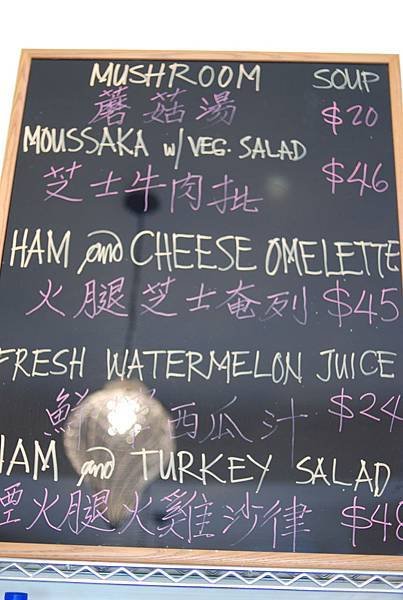 MUSHROOM SOUP
蘑菇湯 $20
MOUSSAKA w/ VEG. SALAD
芝士牛肉批 $46
HAM and CHEESE OMELETTE
火腿芝士奄列 $45
FRESH WATERMELON JUICE
鮮 西瓜汁 $24
HAM and TURKEY SALAD
煙火腿火雞沙律 $48